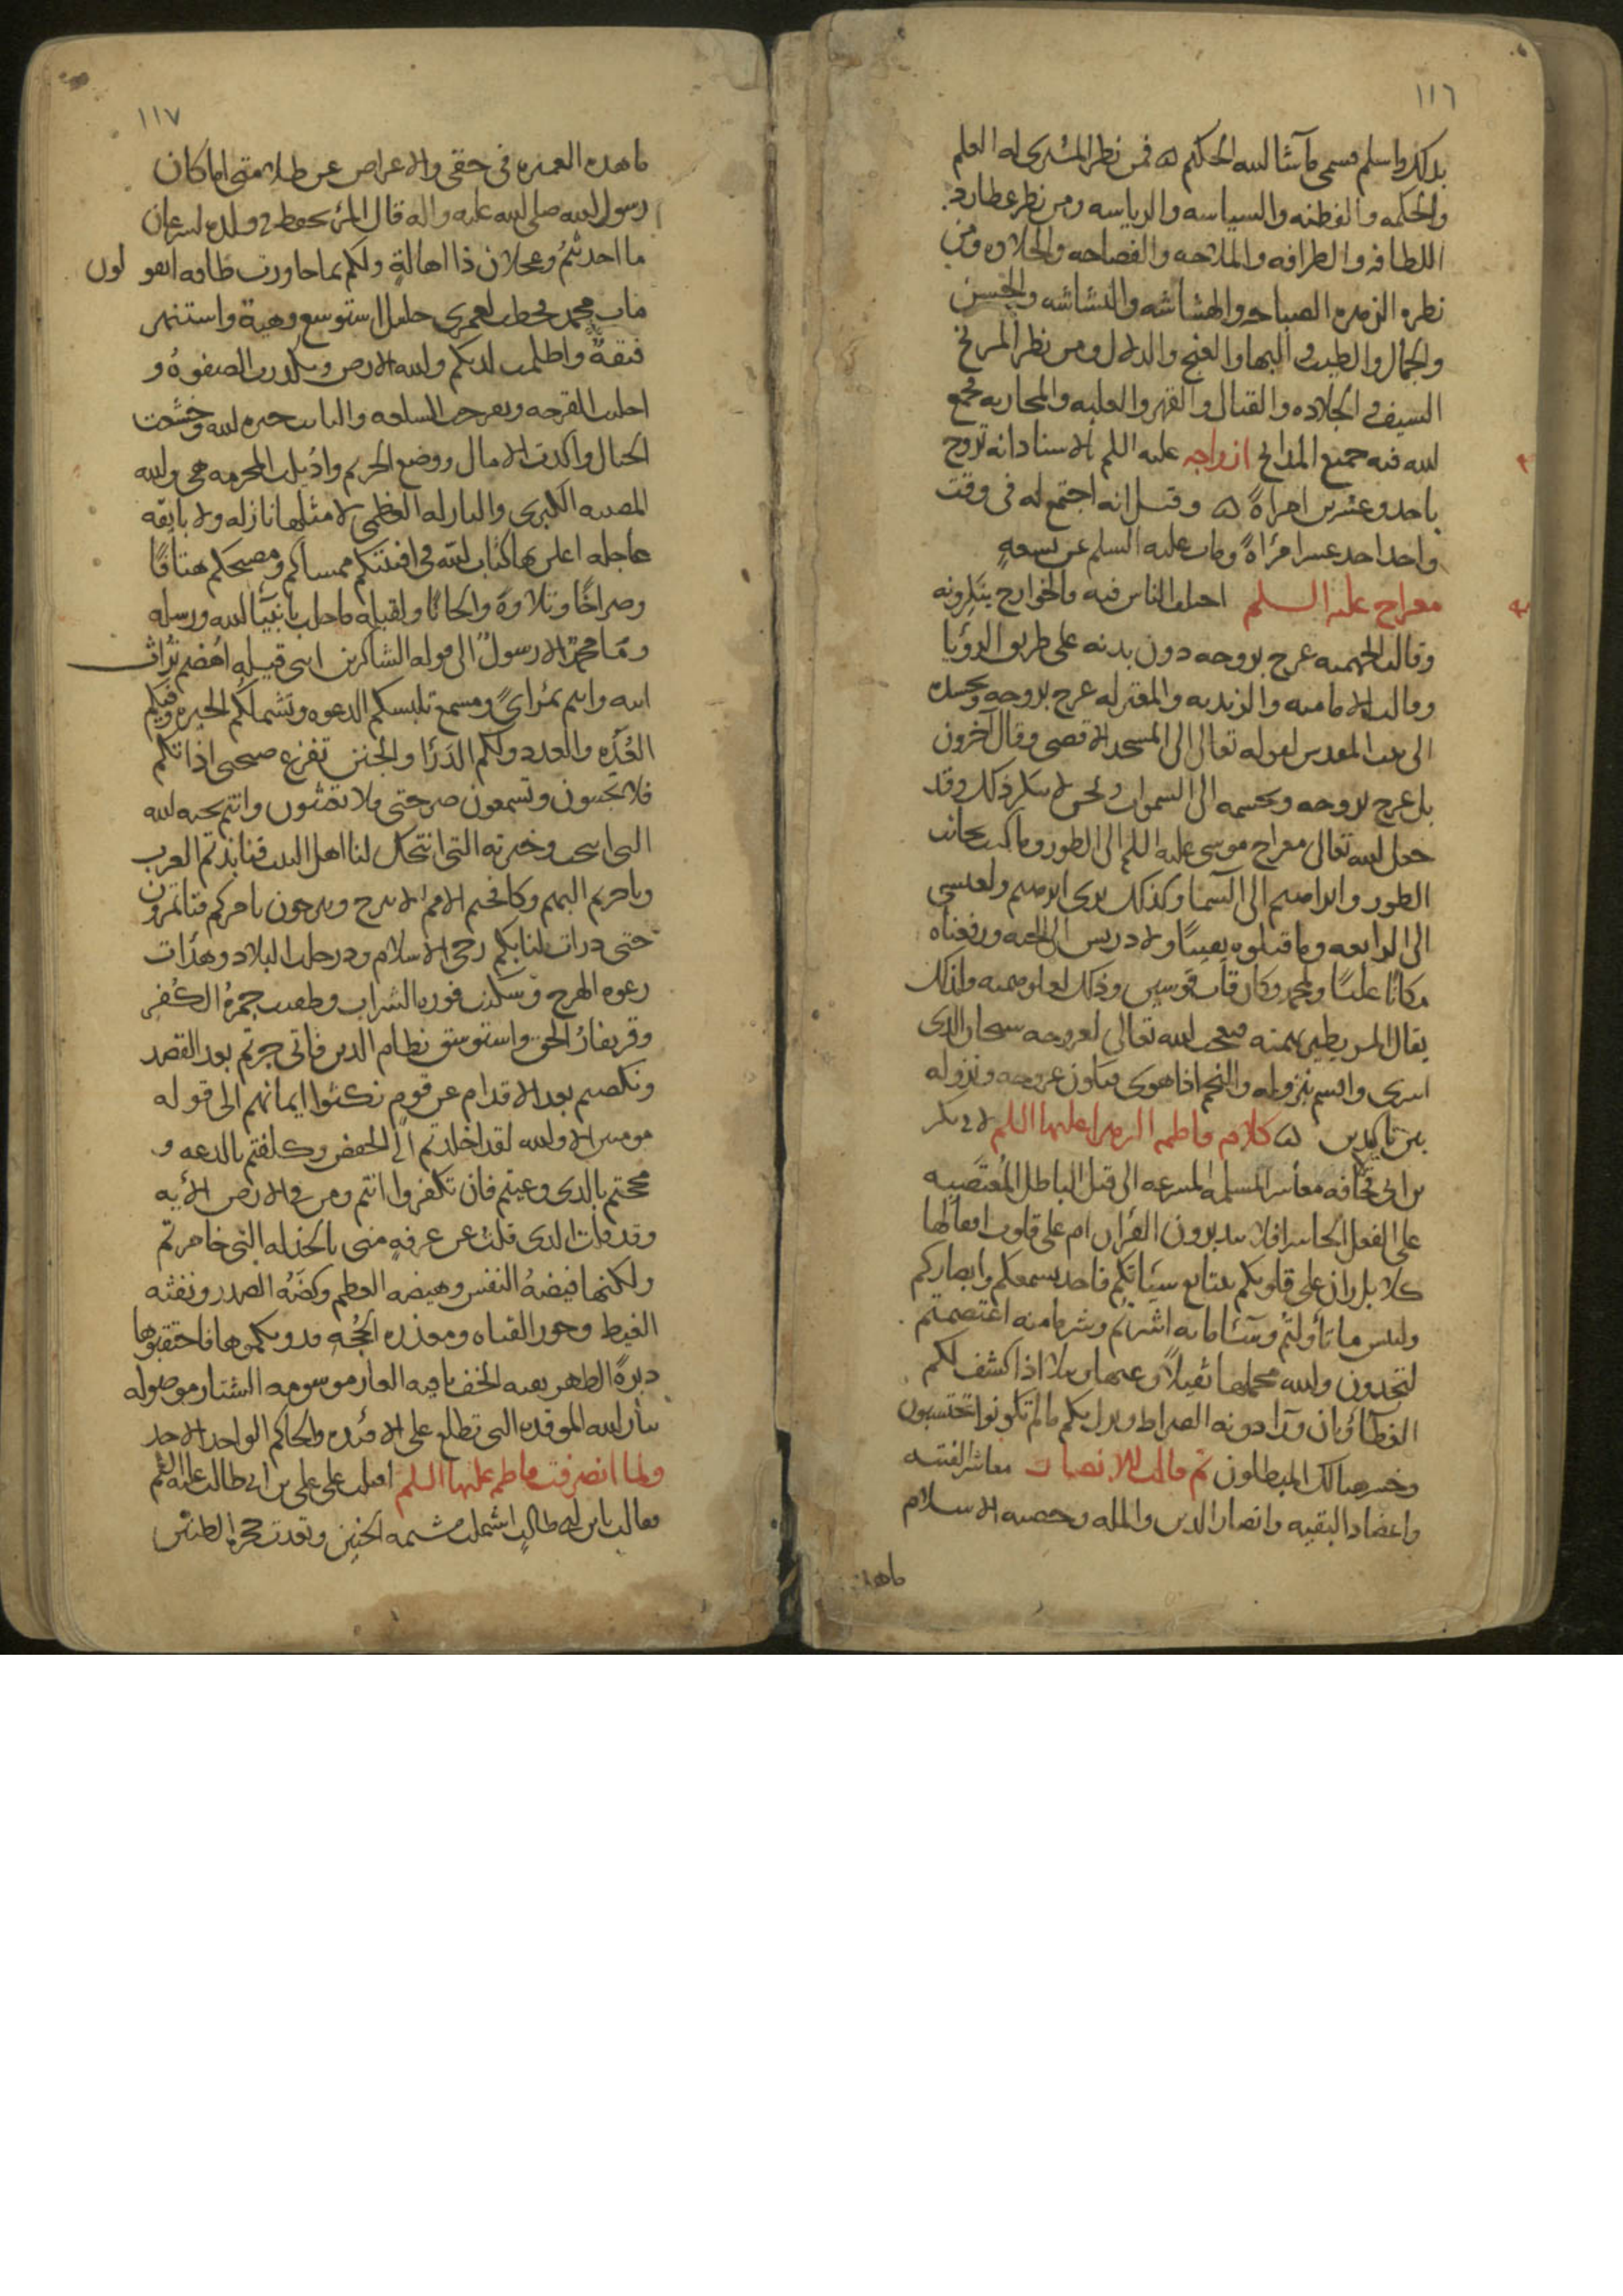 ١١٦
بذلك واسلم فسمى ماشا الله الحكيم ۵ فمن نظر المشترى له العلم
والحكمه والفطنه والسياسه والرياسه ومن نظر عطارد
اللطافه والظرافه والملاحه والفصاحه والحلاوه ومن
نظره الزهره الصباحه والهشاشه والبشاشه والحسن
والجمال والطيب والبها والغنج والدلال ومن نظر المريخ
السيف والجلاده والقتال والقهر والغلبه والمحاربه فجمع
الله فيه جميع المدائح ازواجه عليه السلم الاسناد انه تزوج
باحدى وعشرين امراة ۵ وقيل انه اجتمع له فى وقت
واحد احد عشر امرأة ومات عليه السلم عن تسعه
معراج عليه السلم اختلف الناس فيه فالخوارج ينكرونه
وقالت الجهميه عرج بروحه دون بدنه على طريق الرؤيا
وقالت الاماميه والزيديه والمعتزله عرج بروحه وبجسده
الى بيت المقدس لقوله تعالى الى المسجد الاقصى وقال آخرون
بل عرج بروحه وبجسمه الى السموات ونحن لا ننكر ذلك وقد
جعل الله تعالى معراج موسى عليه السلم الى الطور وما كنت بجانب
الطور وابراهيم الى السما وكذلك نرى ابرهيم ولعيسى
الى الرابعه وما قتلوه يقينًا ولادريس الى الجنه ورفعناه
مكانًا عليًا ولمحمد وكان قاب قوسين وذلك لعلو همته ولذلك
يقال المرء يطير بهمته فتعجب الله تعالى لعروجه سبحان الذى
اسرى واقسم بنزوله والنجم اذا هوى فيكون عروجه ونزوله
بين تاكيدين ۵ كلام فاطمه الزهرا عليها السلم لابى بكر
بن ابى قحافه معاشر المسلمه المسرعه الى قيل الباطل المغضيه
على الفعل الخاسر افلا يتدبرون القرآن ام على قلوب اقفالها
كلا بل ران على قلوبكم بتتابع سيئاتكم فاخذ بسمعكم وابصاركم
ولبئس ما تأولتم وسآء ما به اشرتم وشر ما منه اعتصمتم
لتجدون والله محملها ثقيلاً وغبها وبيلا اذا كشف لكم
الغطآؤ وبان ورآا دونه الصراط وبدا بكم ما لم تكونوا تحتسبون
وخسر هنالك المبطلون ثم قالت للانصار معاشر الفتيه
واعضاد البقيه وانصار الدين والمله وحضنه الاسلام
ما هذه
١١٧
ما هذه الغميزه فى حقى والاعراض عن ظلامتى اما كان
رسول الله صلى الله عليه واله قال المرء يحفظ فى ولده لسرعان
ما احدثتم وعجلان ذا اهالةٍ ولكم بما حاورت طاقه اتقولون
مات محمد فخطب لعمرى جليل استوسع وهيه واستنهر
فتقهُ واظلمت لديكم والله الارض وتكدرت الصفوهُ و
الجبال واكدت الامال ووضع الحريم واذيلت المحرمه هى والله
المصيبه الكبرى والنازله العظمى لا مثلها نازله ولا بائقه
عاجله اعلن بها كتاب الله فى افنيتكم ممساكم ومصبحكم هتافًا
وصراخًا وتلاوة والحانًا ولقبله ما حل بانبيآ الله ورسله
وما محمد الا رسولٌ الى قوله الشاكرين ابنى قيله اهضم تراث
ابيه وانتم بمرأىً ومسمع تلبسكم الدعوه وتشملكم الحيره وفيكم
العُدّه والعدد ولكم الدار والجنن تفزع صيحتى اذانكم
فلا تجيبون وتسمعون صرختى فلا تغيثون وانتم نخبه الله
التى انتخب وخيرته التى انتحل لنا اهل البيت فنابذتم العرب
وناحزتم البهم وكافحتم الامم لا نبرح وتبرحون نامركم فتأتمرون
حتى درات لنا بكم رحى الاسلام ودر حلب البلاد وهدأت
رعوه الهرج وسكنت فوره الشراب وطفيت جمرهُ الكفر
وقر نفارُ الحق واستوسق نظام الدين فأنى جرتم بعد القصد
ونكصتم بعد الاقدام عن قومٍ نكثوا ايمانهم الى قوله
مومنين الا والله لقد اخلدتم الى الخفض وكلفتم بالدعه و
مججتم بالذى وعيتم فان تكفروا انتم ومن فى الارض الآيه
وقد قلت الذى قلت عن عرفةٍ منى بالخذله التى خامرتم
ولكنها فيضهُ النفس وهيضه العظم وكظّهُ الصدر ونفثه
الغيظ وخور القناه ومعذره الحجُه فدونكموها فاحتقبوها
دبرهً الظهر نقبه الخف باقيه العار موسومه الشنار موصوله
بنار الله الموقده التى تطلع على الافئده والحاكم الواحد الاحد
ولما انصرفت فاطمه عليها السلم اقبلت على على بن ابى طالب عليه السلم
فقالت يابن ابى طالب اشتملت مشيمه الجنين وقعدت حجرة الظنين